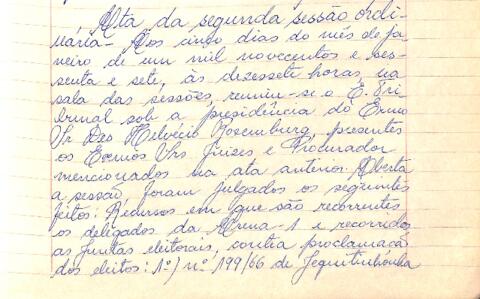 Ata da segunda sessão ordi-
nária - Aos cinco dias do mês de ja-
neiro de um mil novecentos e ses-
senta e sete, às dezessete horas, na
sala das sessões, reuniu-se o E. Tri-
bunal sob a presidência do Exmo
Sr Des Helvécio Rosemburg, presentes
os Exmos Srs Juizes e Procurador
mencionados na ata anterior. Aberta
a sessão, foram julgados os seguintes
feitos: Recursos em que são recorrentes
os delegados da Arena-1 e recorridos
as Juntas eleitorais, contra proclamação
dos eleitos: 1º) nº 199/66 de Jequitinhonha